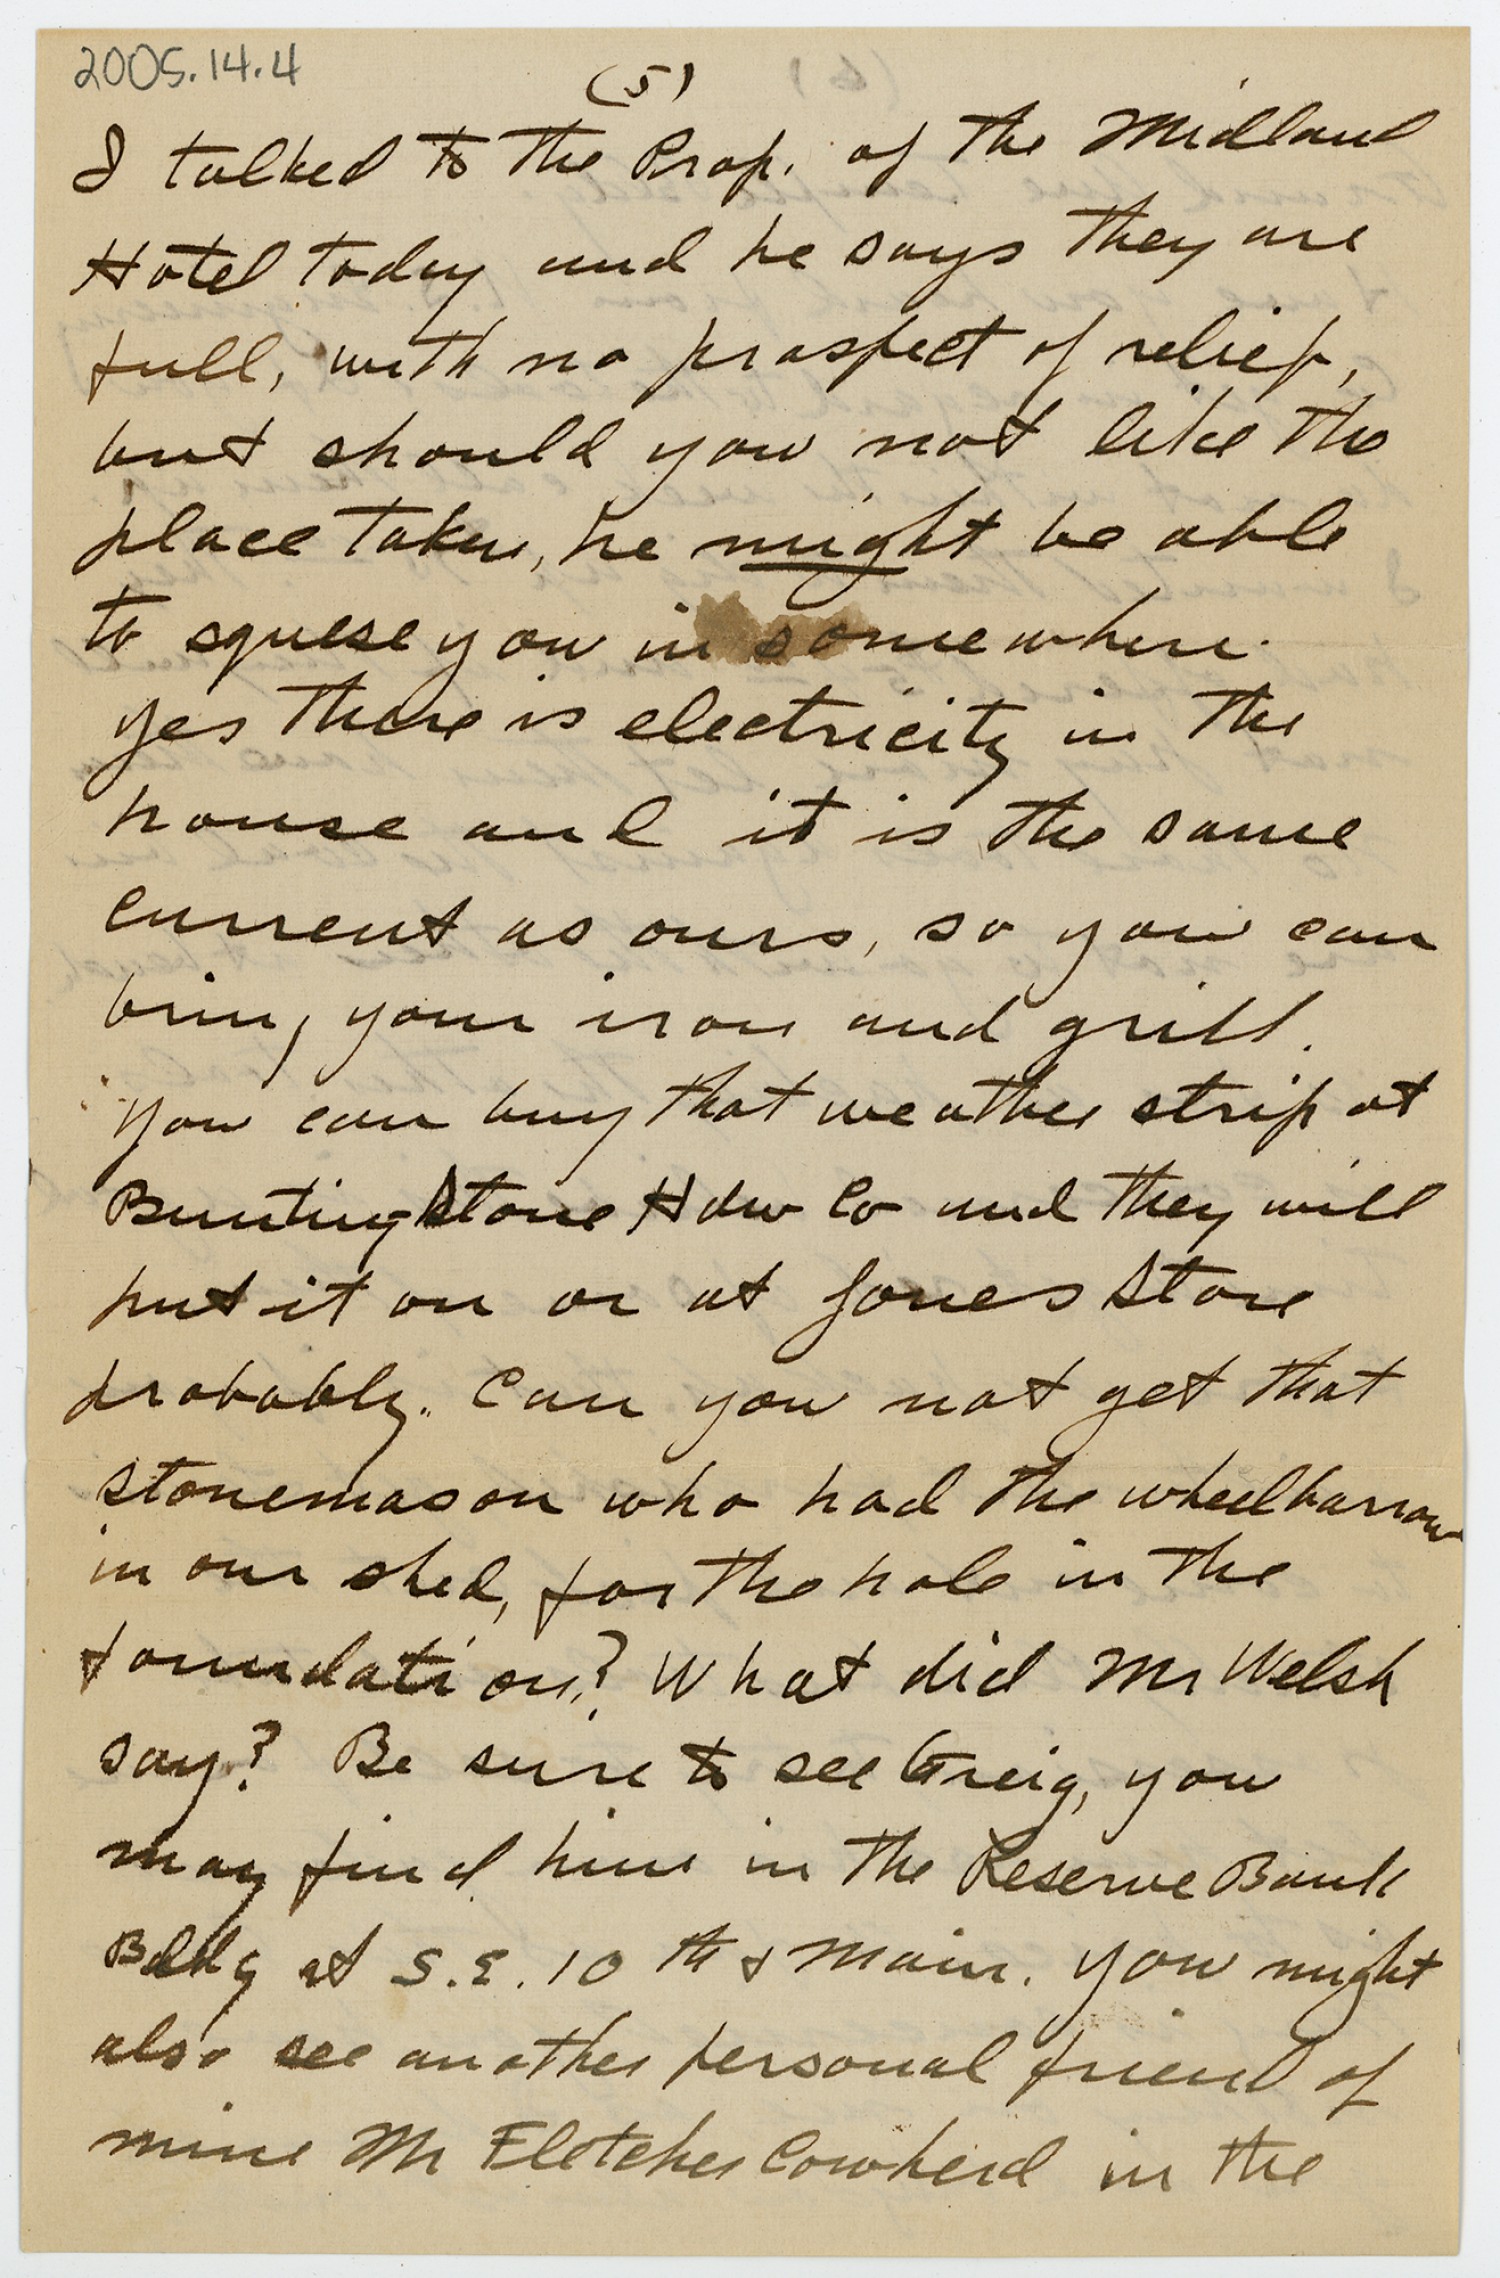 2005.14.4
(5)
I talked to the Prop. of the Midland
Hotel today and he says they are
full, with no prospect of relief,
but should you not like the
place taken, he might be able
to squese you in somewhere.
Yes there is electricity in the
house and it is the same
current as ours, so you can
bring your iron and grill.
You can buy that weather strip at
Bunting Stone Hdw Co and they will
put it on or at Jones Store
probably. Can you not get that
stonemason who had the wheelbarrow
in our shed, for the hole in the
foundation? What did Mr Welsh
say? Be sure to see Greig, you
may find him in the Reserve Bank
Bldg at S.E. 10th & Main. You might
also see another personal friend of
mine Mr Fletcher Cowherd in the